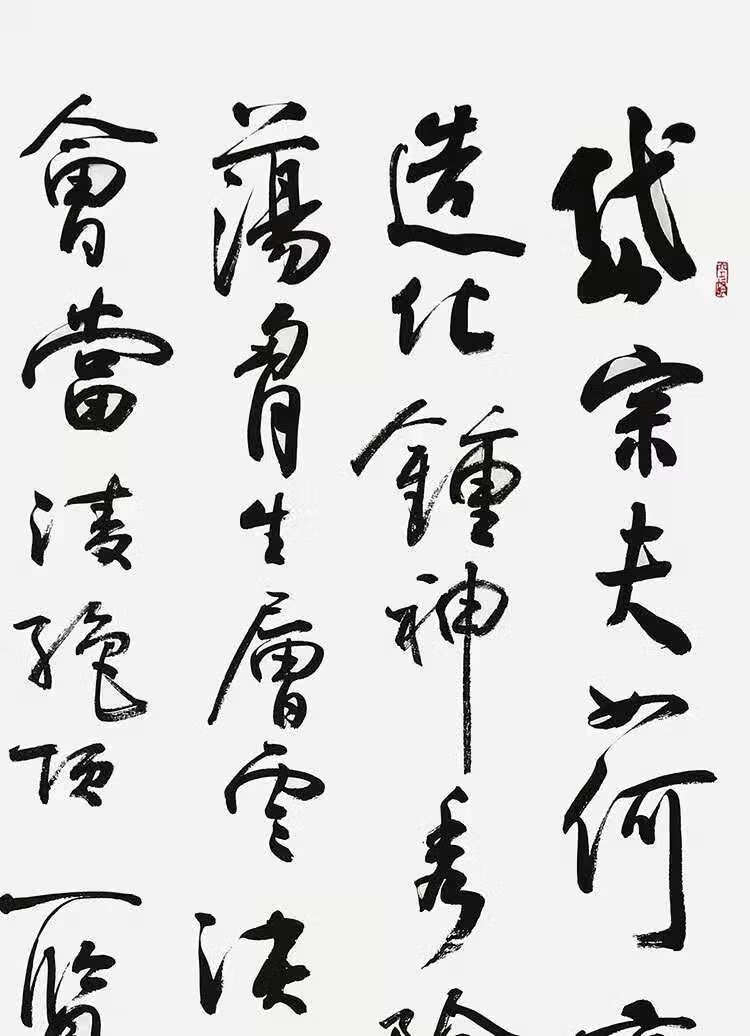 岱宗夫如何
造化鍾神秀陰
蕩胷生層雲決
會當淩絕頂一覽